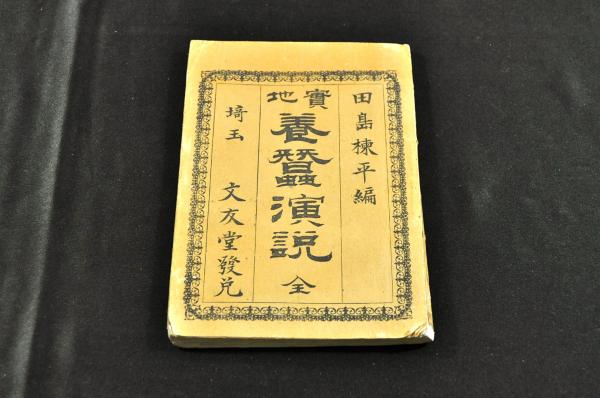 田島棟平編
實地
養蠶演説
全
埼玉 文友堂發兌